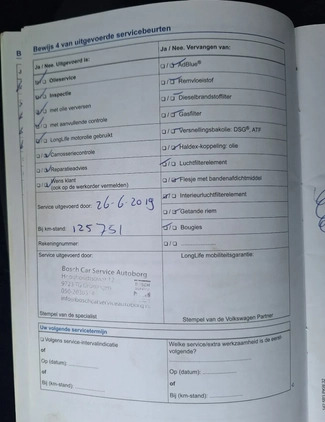 B
Bewijs 4 van uitgevoerde servicebeurten
Ja / Nee. Uitgevoerd is:
Olieservice
Inspectie
met olie verversen
met aanvullende controle
LongLife motorolie gebruikt
Carrosseriecontrole
Reparatieadvies
Wens klant
(ook op de werkorder vermelden)
Service uitgevoerd door: 26-6-2019
Bij km-stand: 125751
Rekeningnummer:
Service uitgevoerd door:
Bosch Car Service Autoborg
Stempel van de specialist
Ja / Nee. Vervangen van:
AdBlue®
Remvloeistof
Dieselbrandstoffilter
Gasfilter
Versnellingsbakolie: DSG®, ATF
Haldex-koppeling: olie
Luchtfilterelement
Flesje met bandenafdichtmiddel
Interieurluchtfilterelement
Getande riem
Bougies
LongLife mobiliteitsgarantie:
Stempel van de Volkswagen Partner
Uw volgende servicetermijn
Volgens service-intervalindicatie
of
Op (datum):
of
Bij (km-stand):
Welke service/extra werkzaamheid is de eerst
volgende?
Op (datum):
of
Bij (km-stand):